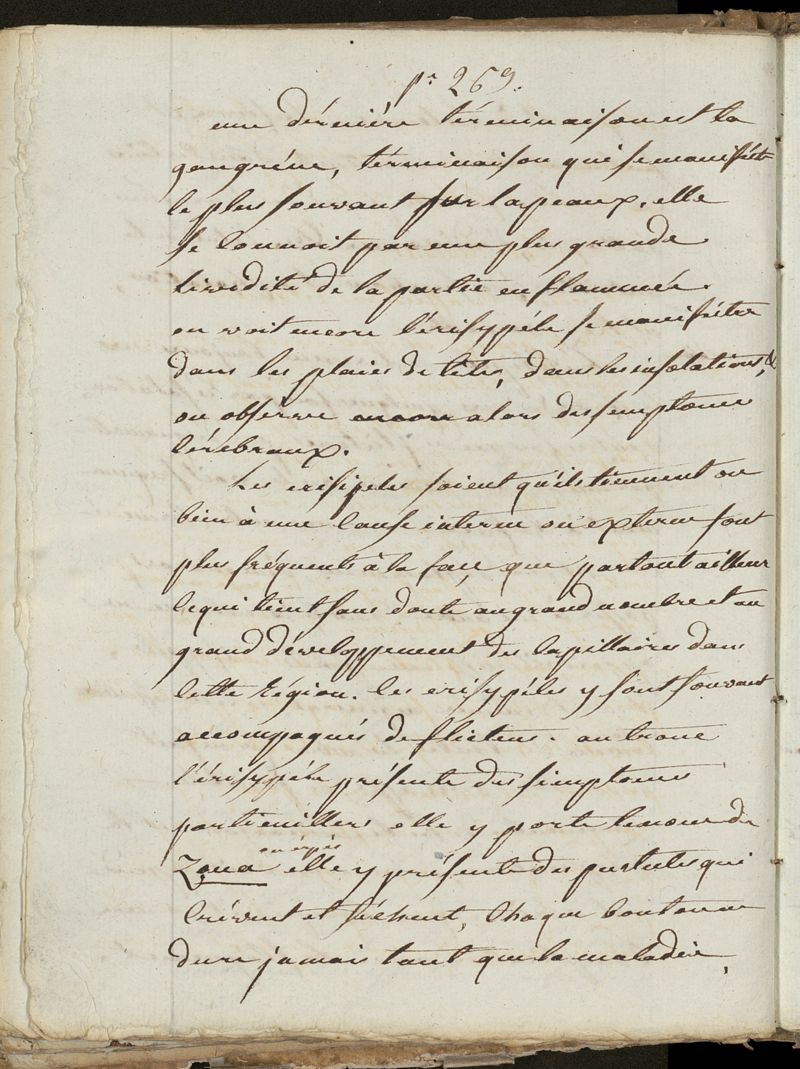 pr 269.
une dérniére términaison est la
gangréne, términaison qui se manifést
le plus souvant sur la peaux. elle
se connoit par une plus grande
lividité de la partie enflammée.
on voit encore l'érisypéle se manifester
dans les plaies de têtes, dans les insolations, &
on obsérve encore alors des simptomes
cérébraux.
Les erisipeles soient qu'ils tiennent ou
bien à une cause interne ou externe sont
plus fréquents à la face que partout ailleur
ce qui tient sans doute au grand nombre et au
grand développement des capillaires dans
cette région. les erisypéles y sont souvant
accompagnés de flictens. au tronc
l'érisypéle présente des simptomes
particuillers elle y porte le nom de
Zona elle y présente des pustules qui
crévent et séchent, chaque bouton ne
dure jamais tant que la maladie,